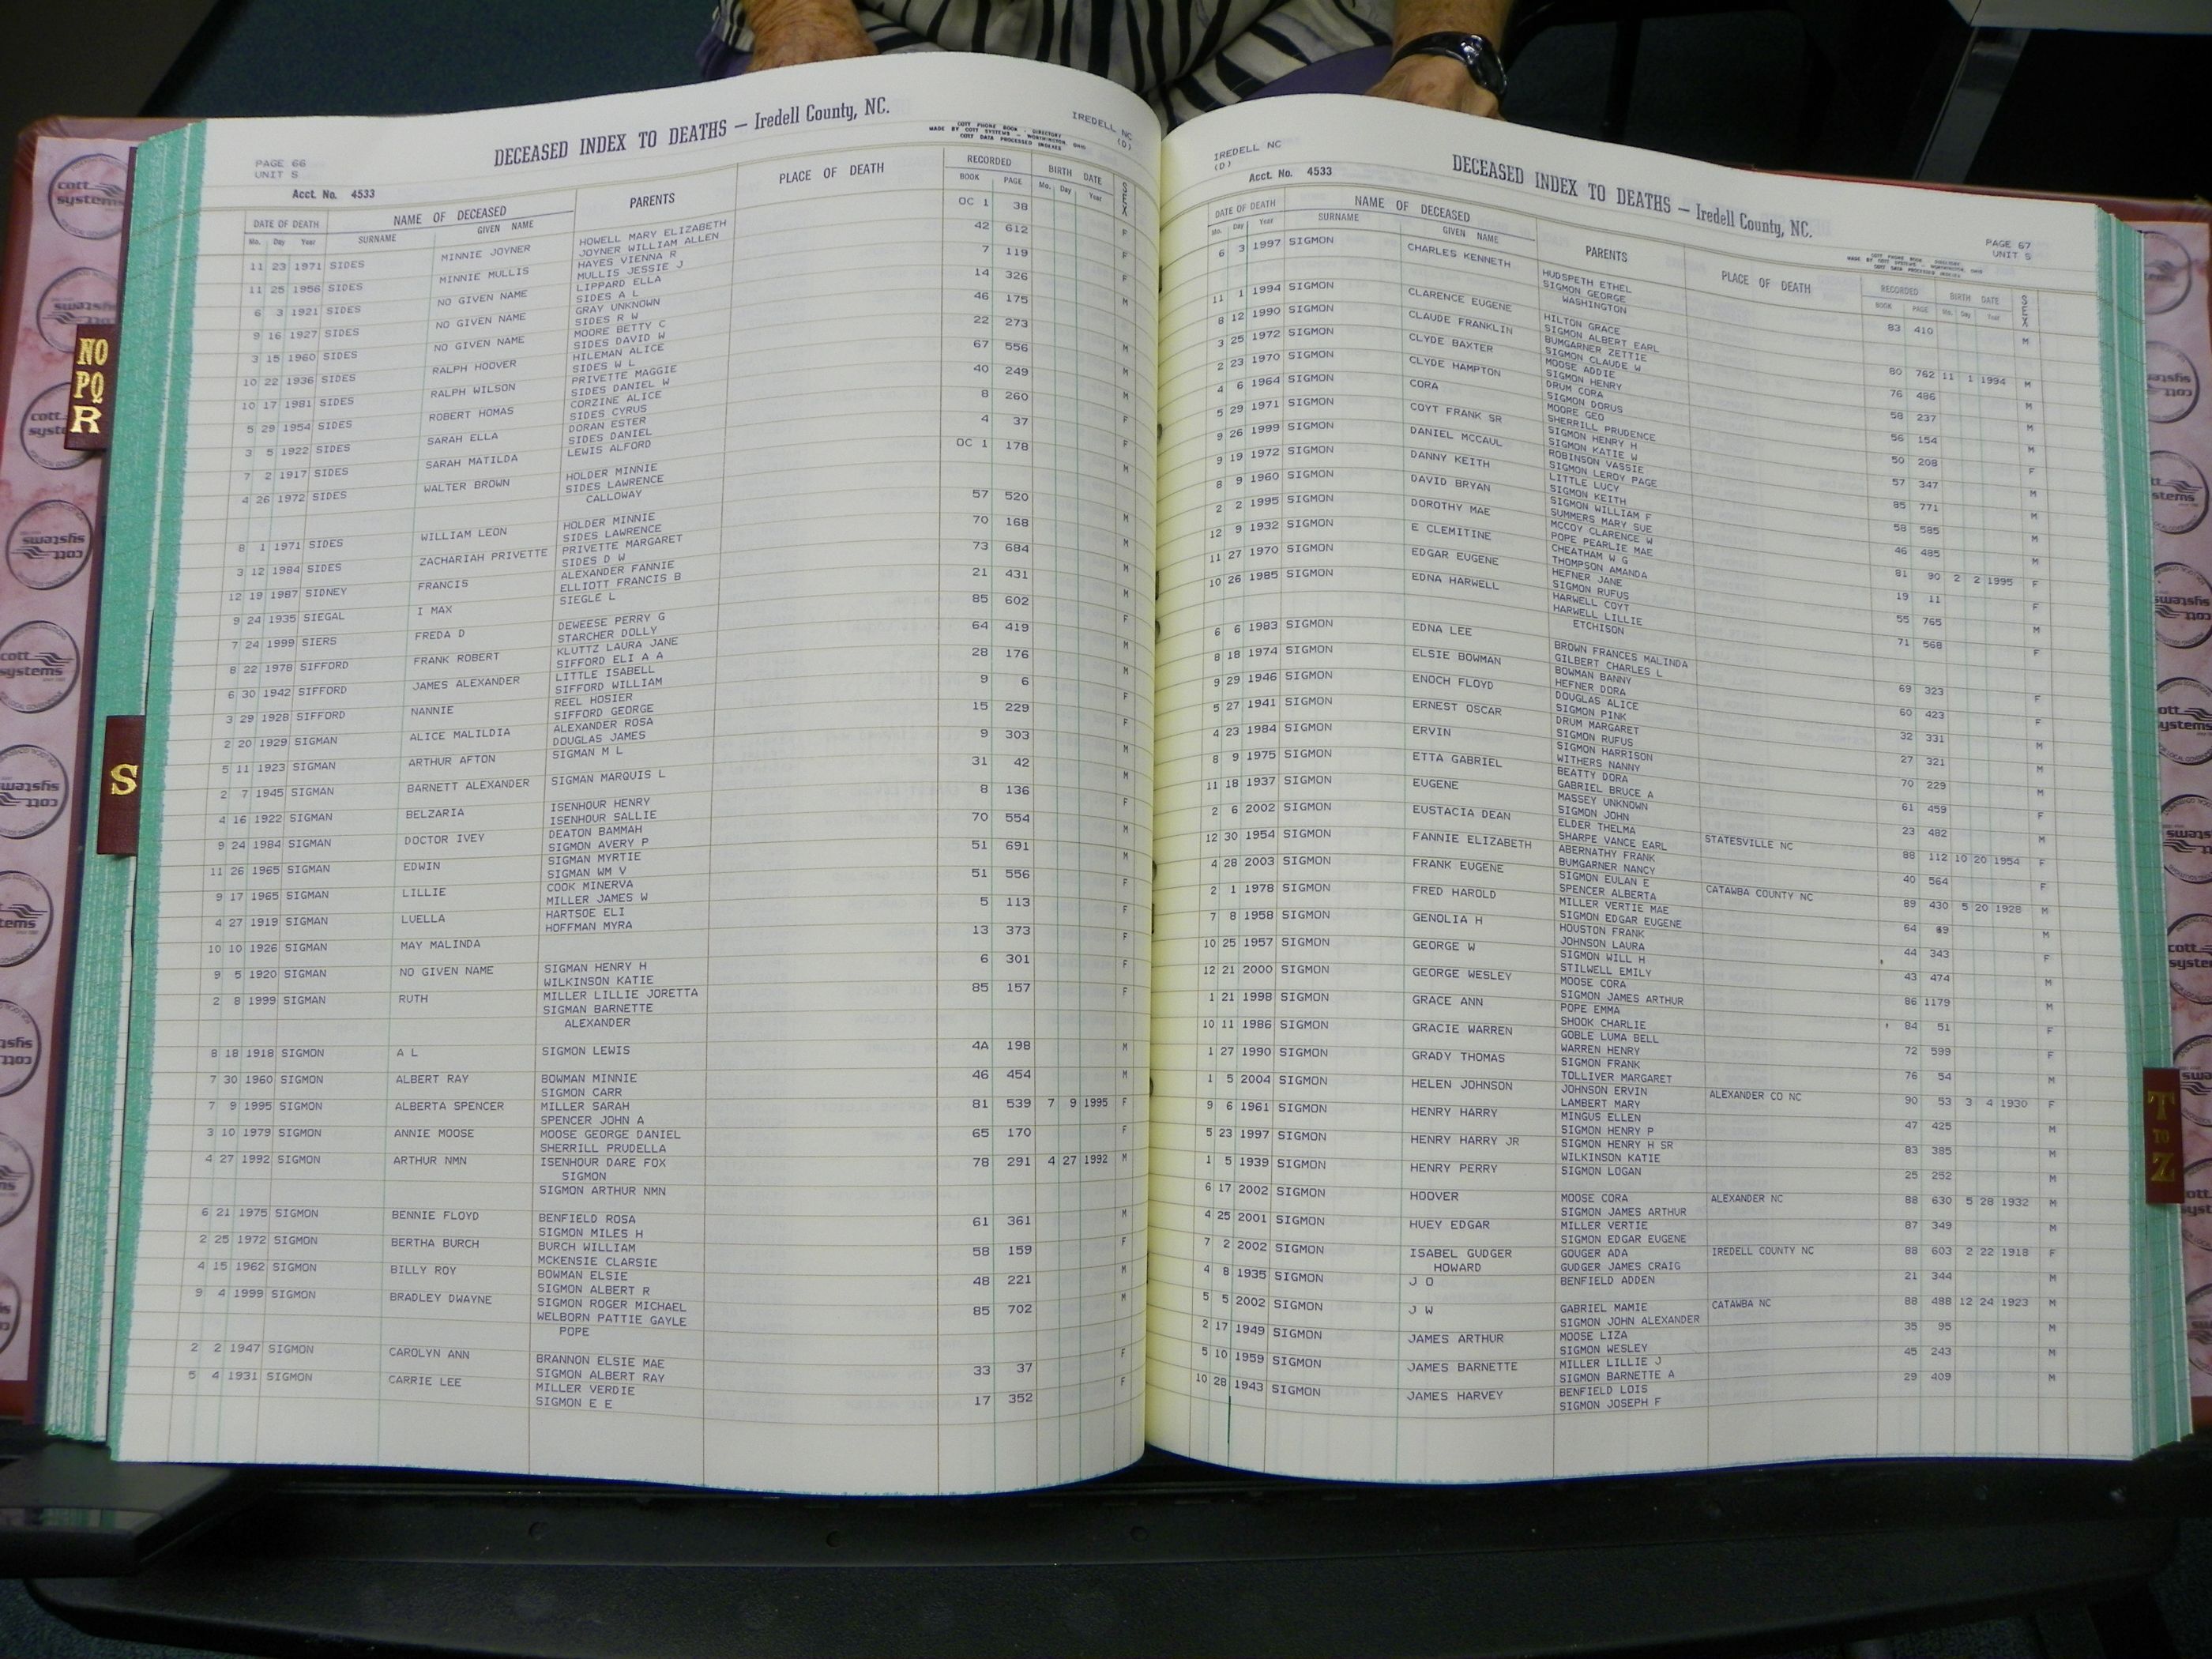 cott systems
NO
PQ
R
S
T
TO
Z
PAGE 66
UNIT S
DECEASED INDEX TO DEATHS — Iredell County, NC.
COTT PHONE BOOK - DIRECTORY
MADE BY COTT SYSTEMS - WORTHINGTON, OHIO
COTT DATA PROCESSED INDEXES
IREDELL NC
(D)
Acct. No. 4533
DATE OF DEATH NAME OF DECEASED PARENTS PLACE OF DEATH RECORDED BIRTH DATE SEX
Mo. Day Year SURNAME GIVEN NAME BOOK PAGE Mo. Day Year
11 23 1971 SIDES MINNIE JOYNER HOWELL MARY ELIZABETH OC 1 38 F
JOYNER WILLIAM ALLEN
11 25 1956 SIDES MINNIE MULLIS HAYES VIENNA R 42 612 F
MULLIS JESSIE J
6 3 1921 SIDES NO GIVEN NAME LIPPARD ELLA 7 119 F
SIDES A L
9 16 1927 SIDES NO GIVEN NAME GRAY UNKNOWN 14 326 M
SIDES R W
3 15 1960 SIDES NO GIVEN NAME MOORE BETTY C 46 175
SIDES DAVID W
10 22 1936 SIDES RALPH HOOVER HILEMAN ALICE 22 273 M
SIDES W L
10 17 1981 SIDES RALPH WILSON PRIVETTE MAGGIE 67 556 M
SIDES DANIEL W
5 29 1954 SIDES ROBERT HOMAS CORZINE ALICE 40 249 M
SIDES CYRUS
3 5 1922 SIDES SARAH ELLA DORAN ESTER 8 260 F
SIDES DANIEL
7 2 1917 SIDES SARAH MATILDA LEWIS ALFORD 4 37 F
4 26 1972 SIDES WALTER BROWN HOLDER MINNIE OC 1 178 M
SIDES LAWRENCE
CALLOWAY
8 1 1971 SIDES WILLIAM LEON HOLDER MINNIE 57 520 M
SIDES LAWRENCE
3 12 1984 SIDES ZACHARIAH PRIVETTE PRIVETTE MARGARET 70 168 M
SIDES D W
12 19 1987 SIDNEY FRANCIS ALEXANDER FANNIE 73 684 M
ELLIOTT FRANCIS B
9 24 1935 SIEGAL I MAX SIEGLE L 21 431 M
7 24 1999 SIERS FREDA D DEWEESE PERRY G 85 602 F
STARCHER DOLLY
8 22 1978 SIFFORD FRANK ROBERT KLUTTZ LAURA JANE 64 419 M
SIFFORD ELI A A
6 30 1942 SIFFORD JAMES ALEXANDER LITTLE ISABELL 28 176 M
SIFFORD WILLIAM
3 29 1928 SIFFORD NANNIE REEL HOSIER 9 6 F
SIFFORD GEORGE
2 20 1929 SIGMAN ALICE MALILDIA ALEXANDER ROSA 15 229 F
DOUGLAS JAMES
5 11 1923 SIGMAN ARTHUR AFTON SIGMAN M L 9 303 M
2 7 1945 SIGMAN BARNETT ALEXANDER SIGMAN MARQUIS L 31 42 M
4 16 1922 SIGMAN BELZARIA ISENHOUR HENRY 8 136 F
ISENHOUR SALLIE
9 24 1984 SIGMAN DOCTOR IVEY DEATON BAMMAH 70 554 M
SIGMON AVERY P
11 26 1965 SIGMAN EDWIN SIGMAN MYRTIE 51 691 M
SIGMAN WM V
9 17 1965 SIGMAN LILLIE COOK MINERVA 51 556 F
MILLER JAMES W
4 27 1919 SIGMAN LUELLA HARTSOE ELI 5 113 F
HOFFMAN MYRA
10 10 1926 SIGMAN MAY MALINDA 13 373 F
9 5 1920 SIGMAN NO GIVEN NAME SIGMAN HENRY H 6 301 F
WILKINSON KATIE
2 8 1999 SIGMAN RUTH MILLER LILLIE JORETTA 85 157 F
SIGMAN BARNETTE
ALEXANDER
8 18 1918 SIGMON A L SIGMON LEWIS 4A 198 M
7 30 1960 SIGMON ALBERT RAY BOWMAN MINNIE 46 454 M
SIGMON CARR
7 9 1995 SIGMON ALBERTA SPENCER MILLER SARAH 81 539 7 9 1995 F
SPENCER JOHN A
3 10 1979 SIGMON ANNIE MOOSE MOOSE GEORGE DANIEL 65 170 F
SHERRILL PRUDELLA
4 27 1992 SIGMON ARTHUR NMN ISENHOUR DARE FOX 78 291 4 27 1992 M
SIGMON
SIGMON ARTHUR NMN
6 21 1975 SIGMON BENNIE FLOYD BENFIELD ROSA 61 361 M
SIGMON MILES H
2 25 1972 SIGMON BERTHA BURCH BURCH WILLIAM 58 159 F
MCKENSIE CLARSIE
4 15 1962 SIGMON BILLY ROY BOWMAN ELSIE 48 221 M
SIGMON ALBERT R
9 4 1999 SIGMON BRADLEY DWAYNE SIGMON ROGER MICHAEL 85 702 M
WELBORN PATTIE GAYLE
POPE
2 2 1947 SIGMON CAROLYN ANN BRANNON ELSIE MAE 33 37 F
SIGMON ALBERT RAY
5 4 1931 SIGMON CARRIE LEE MILLER VERDIE 17 352 F
SIGMON E E
IREDELL NC
(D)
DECEASED INDEX TO DEATHS — Iredell County, NC.
Acct. No. 4533
PAGE 67
UNIT S
COTT PHONE BOOK - DIRECTORY
MADE BY COTT SYSTEMS - WORTHINGTON, OHIO
COTT DATA PROCESSED INDEXES
DATE OF DEATH NAME OF DECEASED PARENTS PLACE OF DEATH RECORDED BIRTH DATE SEX
Mo. Day Year SURNAME GIVEN NAME BOOK PAGE Mo. Day Year
6 3 1997 SIGMON CHARLES KENNETH HUDSPETH ETHEL 83 410 M
SIGMON GEORGE
WASHINGTON
11 1 1994 SIGMON CLARENCE EUGENE HILTON GRACE 80 762 11 1 1994 M
SIGMON ALBERT EARL
8 12 1990 SIGMON CLAUDE FRANKLIN BUMGARNER ZETTIE 76 486 M
SIGMON CLAUDE W
3 25 1972 SIGMON CLYDE BAXTER MOOSE ADDIE 58 237 M
SIGMON HENRY
2 23 1970 SIGMON CLYDE HAMPTON DRUM CORA 56 154 M
SIGMON DORUS
4 6 1964 SIGMON CORA MOORE GEO 50 208 F
SHERRILL PRUDENCE
5 29 1971 SIGMON COYT FRANK SR SIGMON HENRY H 57 347 M
SIGMON KATIE W
9 26 1999 SIGMON DANIEL MCCAUL ROBINSON VASSIE 85 771 M
SIGMON LEROY PAGE
9 19 1972 SIGMON DANNY KEITH LITTLE LUCY 58 585 M
SIGMON KEITH
8 9 1960 SIGMON DAVID BRYAN SIGMON WILLIAM F 46 485 M
SUMMERS MARY SUE
2 2 1995 SIGMON DOROTHY MAE MCCOY CLARENCE W 81 90 2 2 1995 F
POPE PEARLIE MAE
12 9 1932 SIGMON E CLEMITINE CHEATHAM W G 19 11 F
THOMPSON AMANDA
11 27 1970 SIGMON EDGAR EUGENE HEFNER JANE 55 765 M
SIGMON RUFUS
10 26 1985 SIGMON EDNA HARWELL HARWELL COYT 71 568 F
HARWELL LILLIE
ETCHISON
6 6 1983 SIGMON EDNA LEE BROWN FRANCES MALINDA 69 323 F
GILBERT CHARLES L
8 18 1974 SIGMON ELSIE BOWMAN BOWMAN BANNY 60 423 F
HEFNER DORA
9 29 1946 SIGMON ENOCH FLOYD DOUGLAS ALICE 32 331 M
SIGMON PINK
5 27 1941 SIGMON ERNEST OSCAR DRUM MARGARET 27 321 M
SIGMON RUFUS
4 23 1984 SIGMON ERVIN SIGMON HARRISON 70 229 M
WITHERS NANNY
8 9 1975 SIGMON ETTA GABRIEL BEATTY DORA 61 459 F
GABRIEL BRUCE A
11 18 1937 SIGMON EUGENE MASSEY UNKNOWN 23 482 M
SIGMON JOHN
2 6 2002 SIGMON EUSTACIA DEAN ELDER THELMA STATESVILLE NC 88 112 10 20 1954 F
SHARPE VANCE EARL
12 30 1954 SIGMON FANNIE ELIZABETH ABERNATHY FRANK 40 564 F
BUMGARNER NANCY
4 28 2003 SIGMON FRANK EUGENE SIGMON EULAN E CATAWBA COUNTY NC 89 430 5 20 1928 M
SPENCER ALBERTA
2 1 1978 SIGMON FRED HAROLD MILLER VERTIE MAE 64 69 M
SIGMON EDGAR EUGENE
7 8 1958 SIGMON GENOLIA H HOUSTON FRANK 44 343 F
JOHNSON LAURA
10 25 1957 SIGMON GEORGE W SIGMON WILL H 43 474 M
STILWELL EMILY
12 21 2000 SIGMON GEORGE WESLEY MOOSE CORA 86 1179 M
SIGMON JAMES ARTHUR
1 21 1998 SIGMON GRACE ANN POPE EMMA 84 51 F
SHOOK CHARLIE
10 11 1986 SIGMON GRACIE WARREN GOBLE LUMA BELL 72 599 F
WARREN HENRY
1 27 1990 SIGMON GRADY THOMAS SIGMON FRANK 76 54 M
TOLLIVER MARGARET
1 5 2004 SIGMON HELEN JOHNSON JOHNSON ERVIN ALEXANDER CO NC 90 53 3 4 1930 F
LAMBERT MARY
9 6 1961 SIGMON HENRY HARRY MINGUS ELLEN 47 425 M
SIGMON HENRY P
5 23 1997 SIGMON HENRY HARRY JR SIGMON HENRY H SR 83 385 M
WILKINSON KATIE
1 5 1939 SIGMON HENRY PERRY SIGMON LOGAN 25 252 M
6 17 2002 SIGMON HOOVER MOOSE CORA ALEXANDER NC 88 630 5 28 1932 M
SIGMON JAMES ARTHUR
4 25 2001 SIGMON HUEY EDGAR MILLER VERTIE 87 349 M
SIGMON EDGAR EUGENE
7 2 2002 SIGMON ISABEL GUDGER GOUGER ADA IREDELL COUNTY NC 88 603 2 22 1918 F
HOWARD GUDGER JAMES CRAIG
4 8 1935 SIGMON J O BENFIELD ADDEN 21 344 M
5 5 2002 SIGMON J W GABRIEL MAMIE CATAWBA NC 88 488 12 24 1923 M
SIGMON JOHN ALEXANDER
2 17 1949 SIGMON JAMES ARTHUR MOOSE LIZA 35 95 M
SIGMON WESLEY
5 10 1959 SIGMON JAMES BARNETTE MILLER LILLIE J 45 243 M
SIGMON BARNETTE A
10 28 1943 SIGMON JAMES HARVEY BENFIELD LOIS 29 409 M
SIGMON JOSEPH F